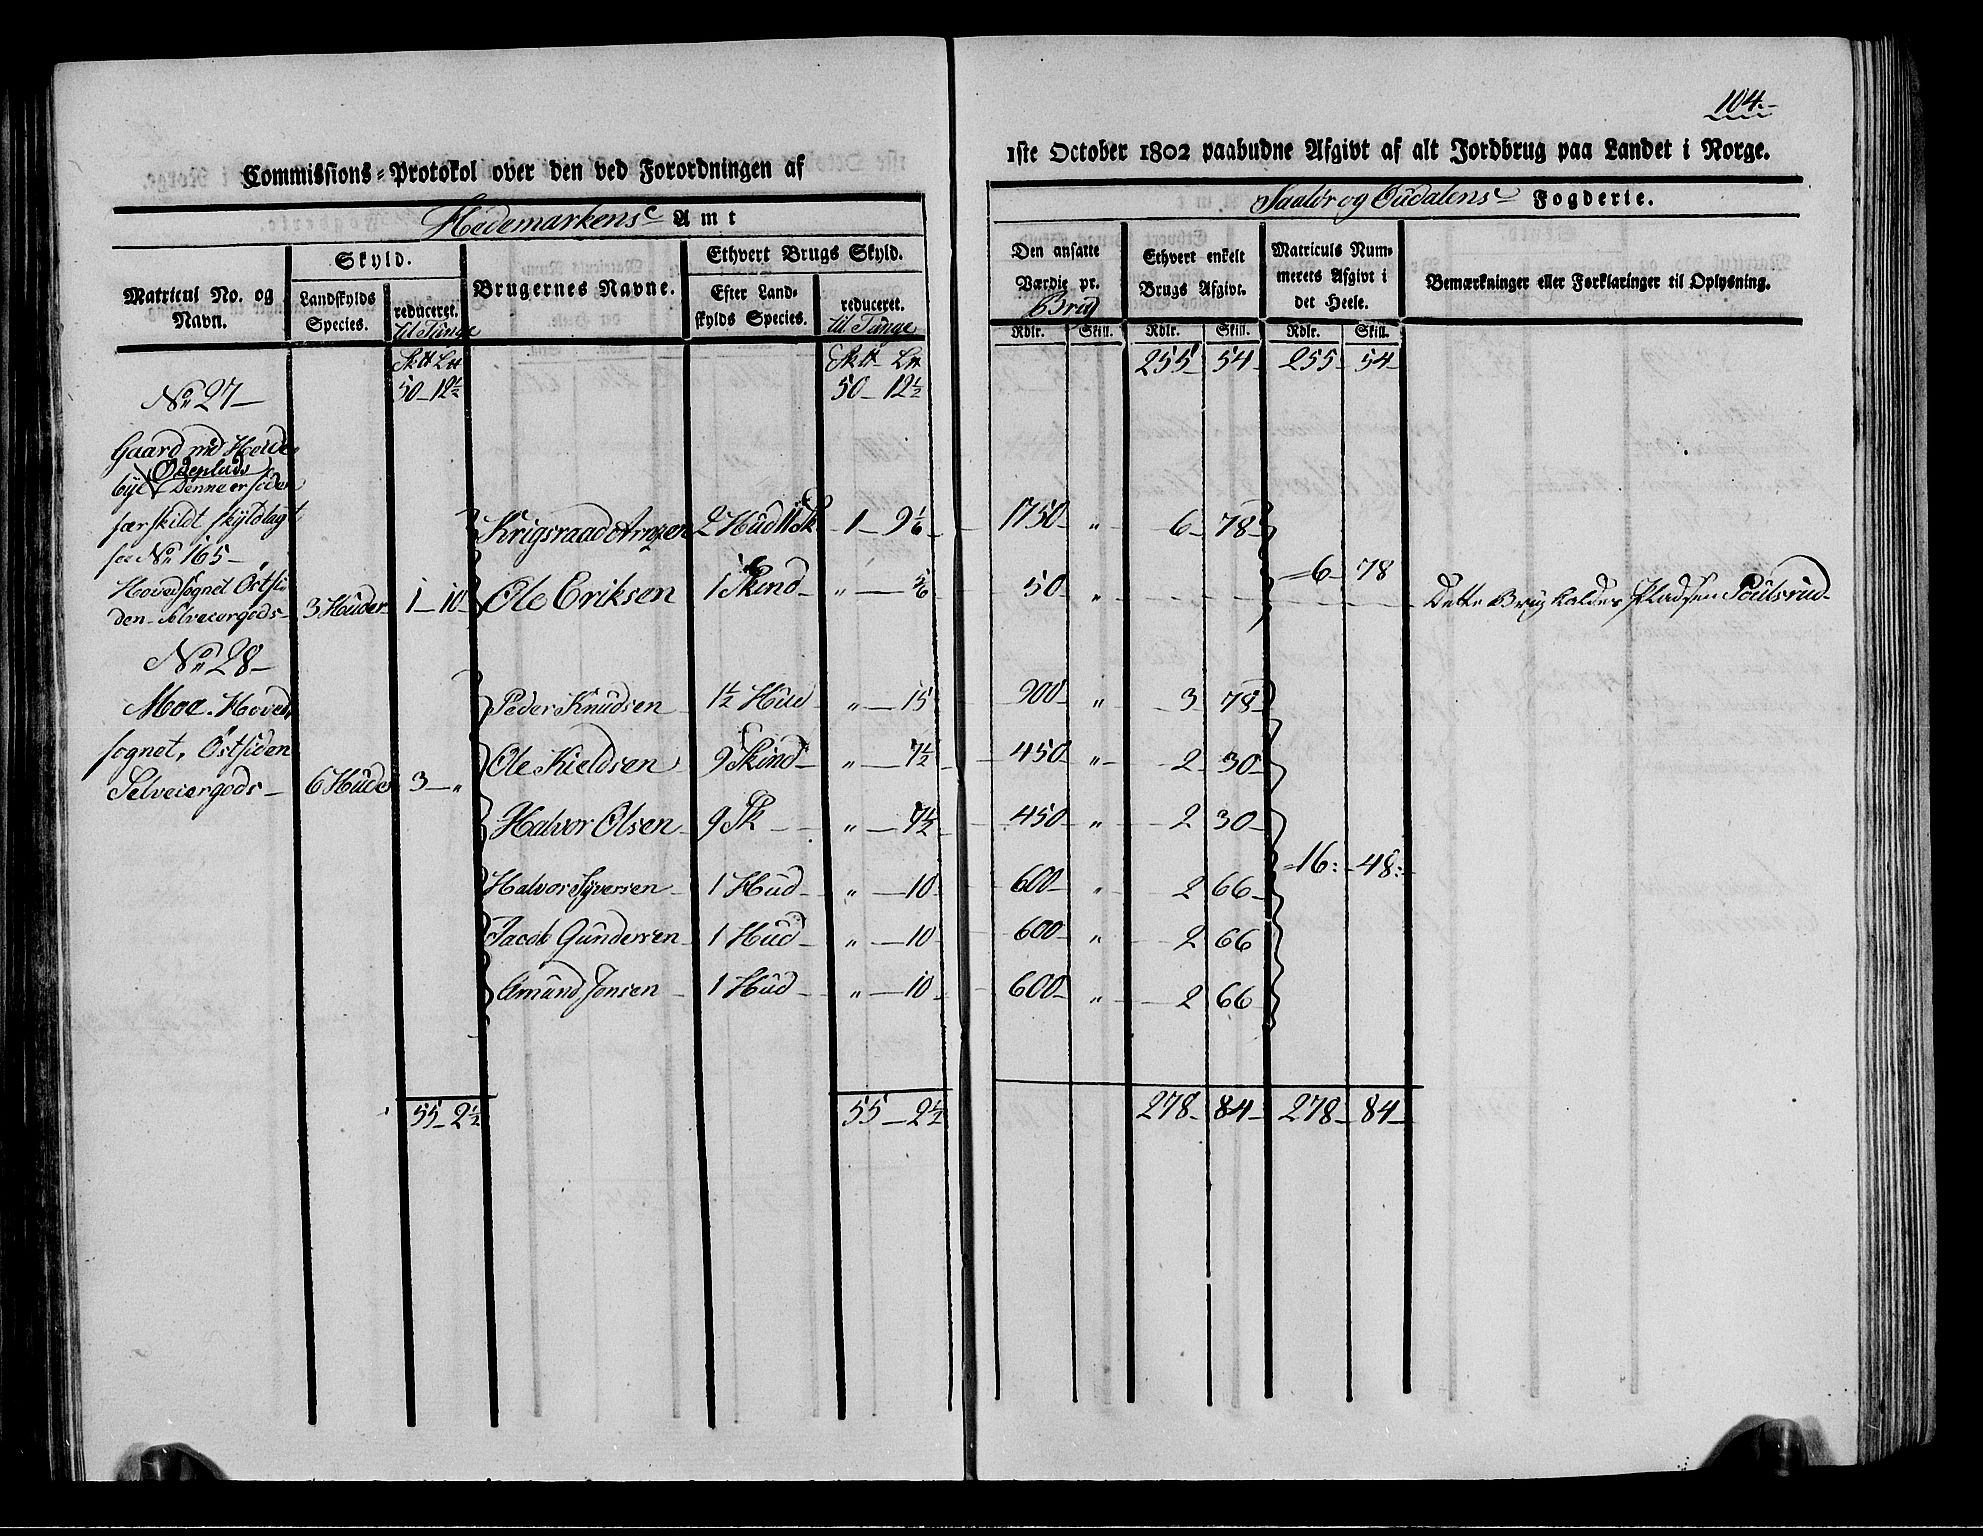 104.
Commissions-Protokol over den ved Forordningen af
1ste October 1802 paabudne Afgivt af alt Jordbrug paa Landet i Norge.
Hedemarkens Amt
Saalør og Oudalens Fogderie.
Matricul No. og Navn.
Skyld.
Landskylds Species.
reduceret. til Tunge
Brugernes Navne.
Ethvert Brugs Skyld.
Efter Landskylds Species.
reduceret. til Tunge
Den ansatte Værdie pr. Brug
Ethvert enkelt Brugs Afgivt.
Matriculs Nummerets Afgivt i det Heele.
Bemærkninger eller Forklaringer til Oplysning.
Rdlr. Skill. Rdlr. Skill. Rdlr. Skill.
50 - 12½ 50 - 12½ 255 - 54 255 - 54
No 27
Gaard med
Ødeplads
Denne er siden
særskildt skyldlagt
No 165
Hovedsognet Østsiden Selveiergods 3 Huder 1 - 10
Krigsraad 2 Hud 11 Sk 1 - 9 1/6 1750 " 6 78
6 78
Ole Eriksen 1 Skind " - 5/6 50 " Dette Brug kaldes Pladsen Poulsrud
No 28
Moe. Hovedsognet, Østsiden Selveiergods 6 Huder 3 - "
Peder Knudsen 1½ Hud " - 15 900 " 3 78
Ole Kieldsen 9 Skind " - 7½ 450 " 2 30
Halvor Olsen 9 Sk " - 7½ 450 " 2 30
16 - 48
Halvor Syversen 1 Hud " - 10 600 " 2 66
Jacob Gundersen 1 Hud " - 10 600 " 2 66
Amund Jonsen 1 Hud " - 10 600 " 2 66
55 - 2½ 55 - 2½ 278 - 84 278 - 84